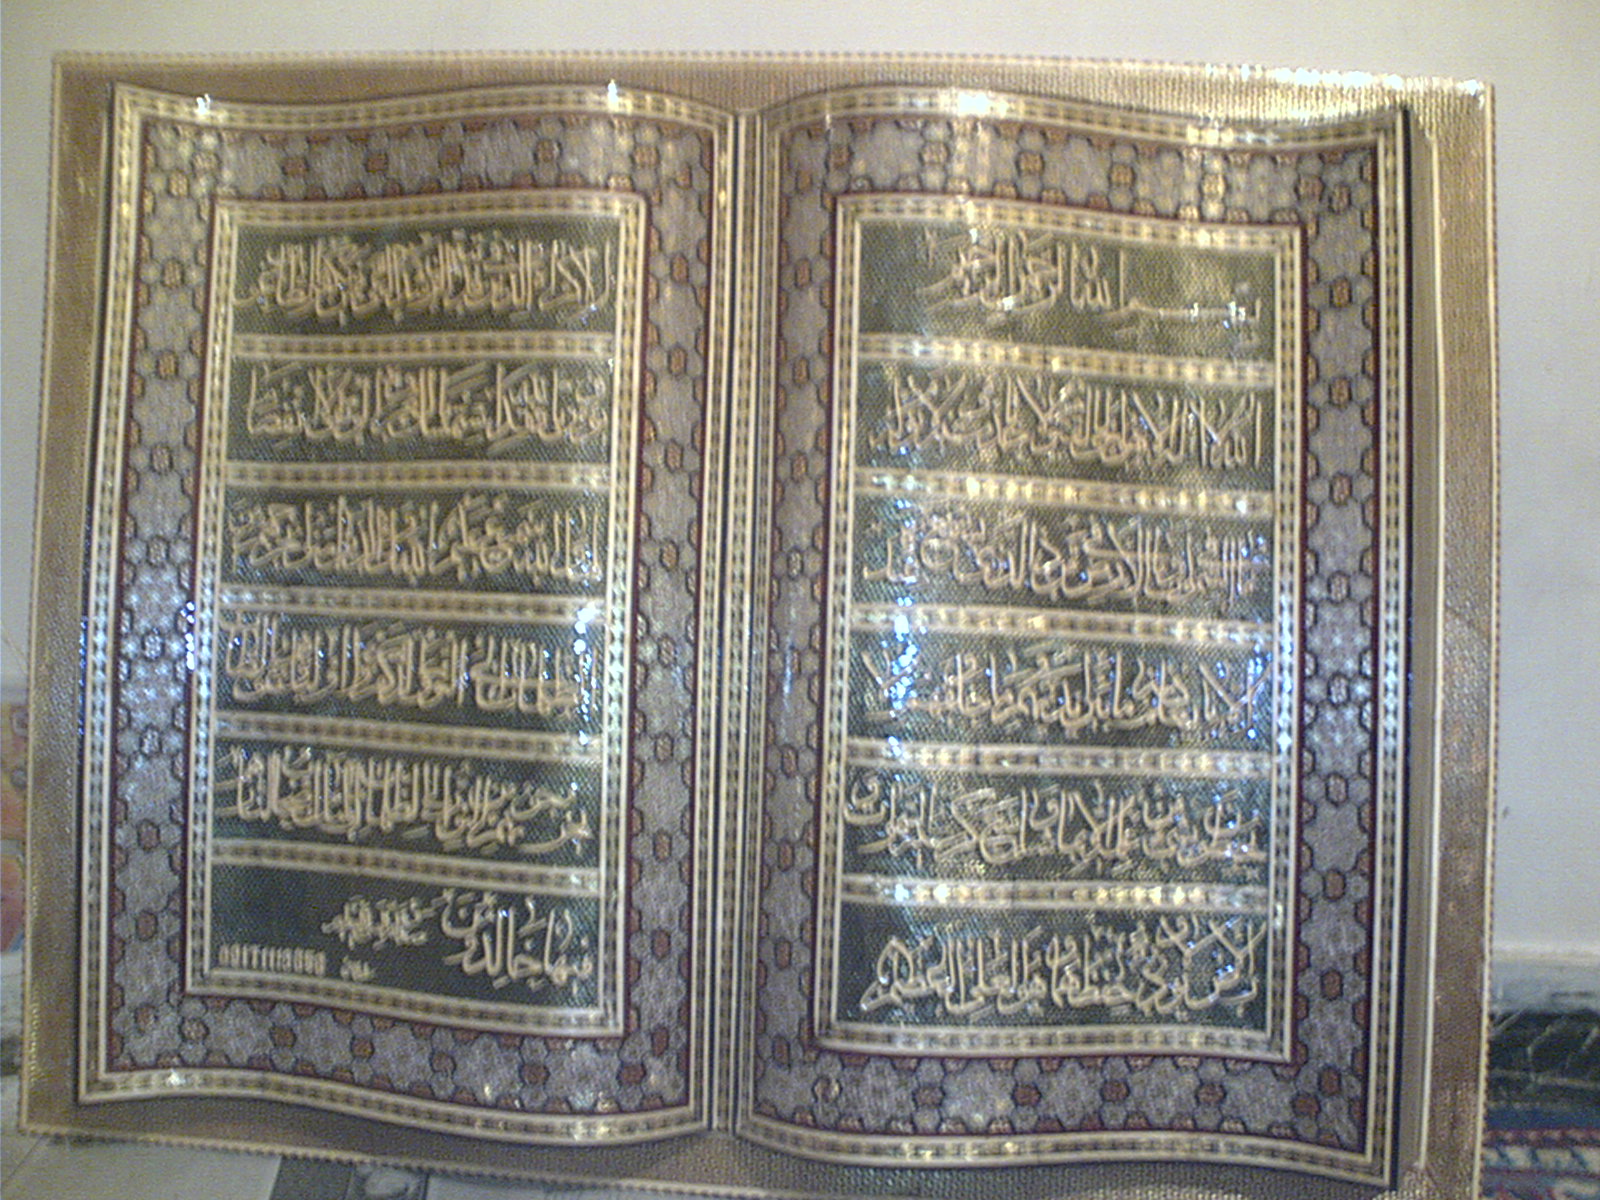 بسم الله الرحمن الرحیم
الله لا اله الا هو الحی القیوم لا تاخذه سنة و لا نوم له
ما فی السموات و ما فی الارض من ذا الذی یشفع عنده
الا باذنه یعلم ما بین ایدیهم و ما خلفهم و لا
یحیطون بشیء من علمه الا بما شاء وسع کرسیه السموات و
الارض و لا یوده حفظهما و هو العلی العظیم
لا اکراه فی الدین قد تبین الرشد من الغی فمن یکفر بالطاغوت
و یومن بالله فقد استمسک بالعروة الوثقی لا انفصام
لها والله سمیع علیم الله ولی الذین آمنوا یخرجهم من
الظلمات الی النور والذین کفروا اولیاوهم الطاغوت
یخرجونهم من النور الی الظلمات اولئک اصحاب النار هم
فیها خالدون